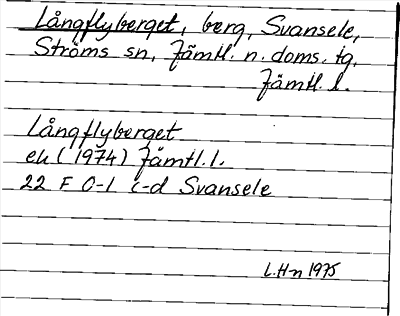 Långflyberget, berg, Svansele,
Ströms sn, Jämtl. n. doms. tg,
Jämtl. l.
Långflyberget
ek (1974) Jämtl. l.
22 F 0-1 c-d Svansele
L.H-n 1975